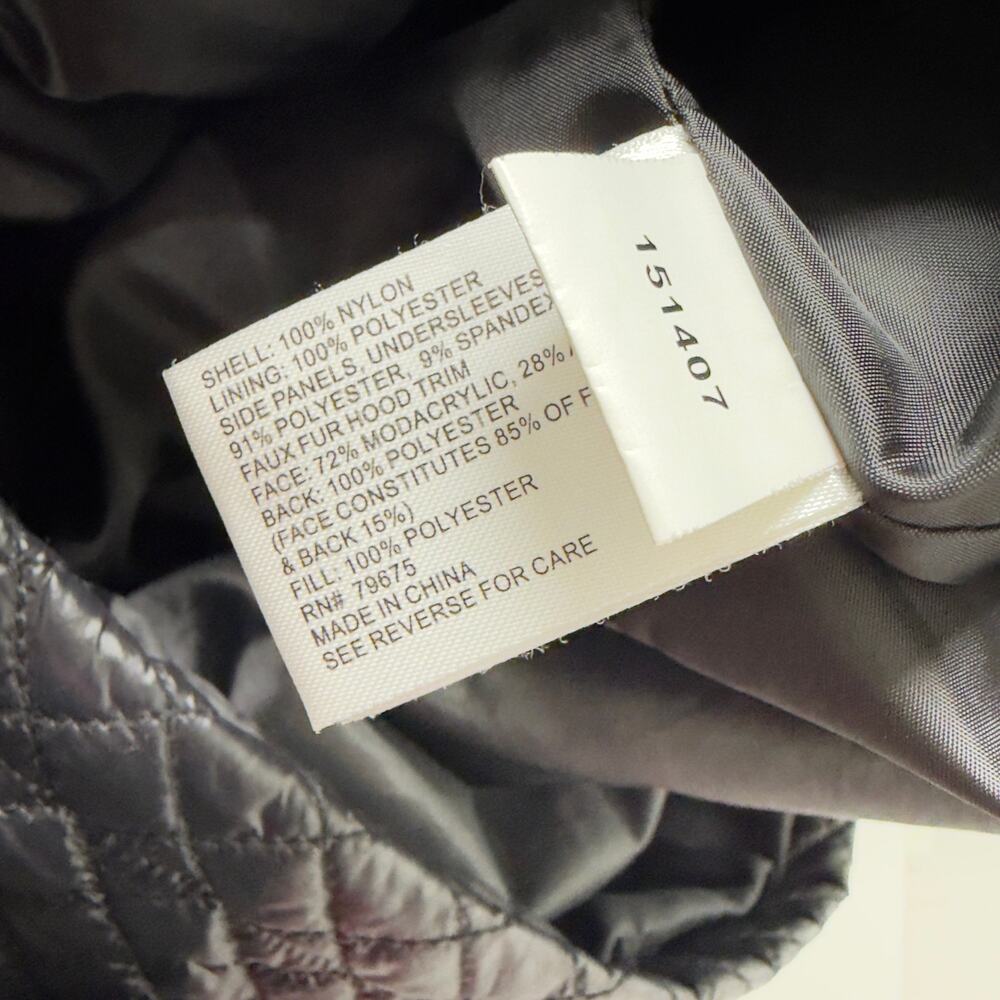 SHELL: 100% NYLON
LINING: 100% POLYESTER
SIDE PANELS, UNDERSLEEVES
91% POLYESTER, 9% SPANDEX
FAUX FUR HOOD TRIM
FACE: 72% MODACRYLIC, 28%
BACK: 100% POLYESTER
(FACE CONSTITUTES 85% OF
& BACK 15%)
FILL: 100% POLYESTER
RN# 79675
MADE IN CHINA
SEE REVERSE FOR CARE
151407